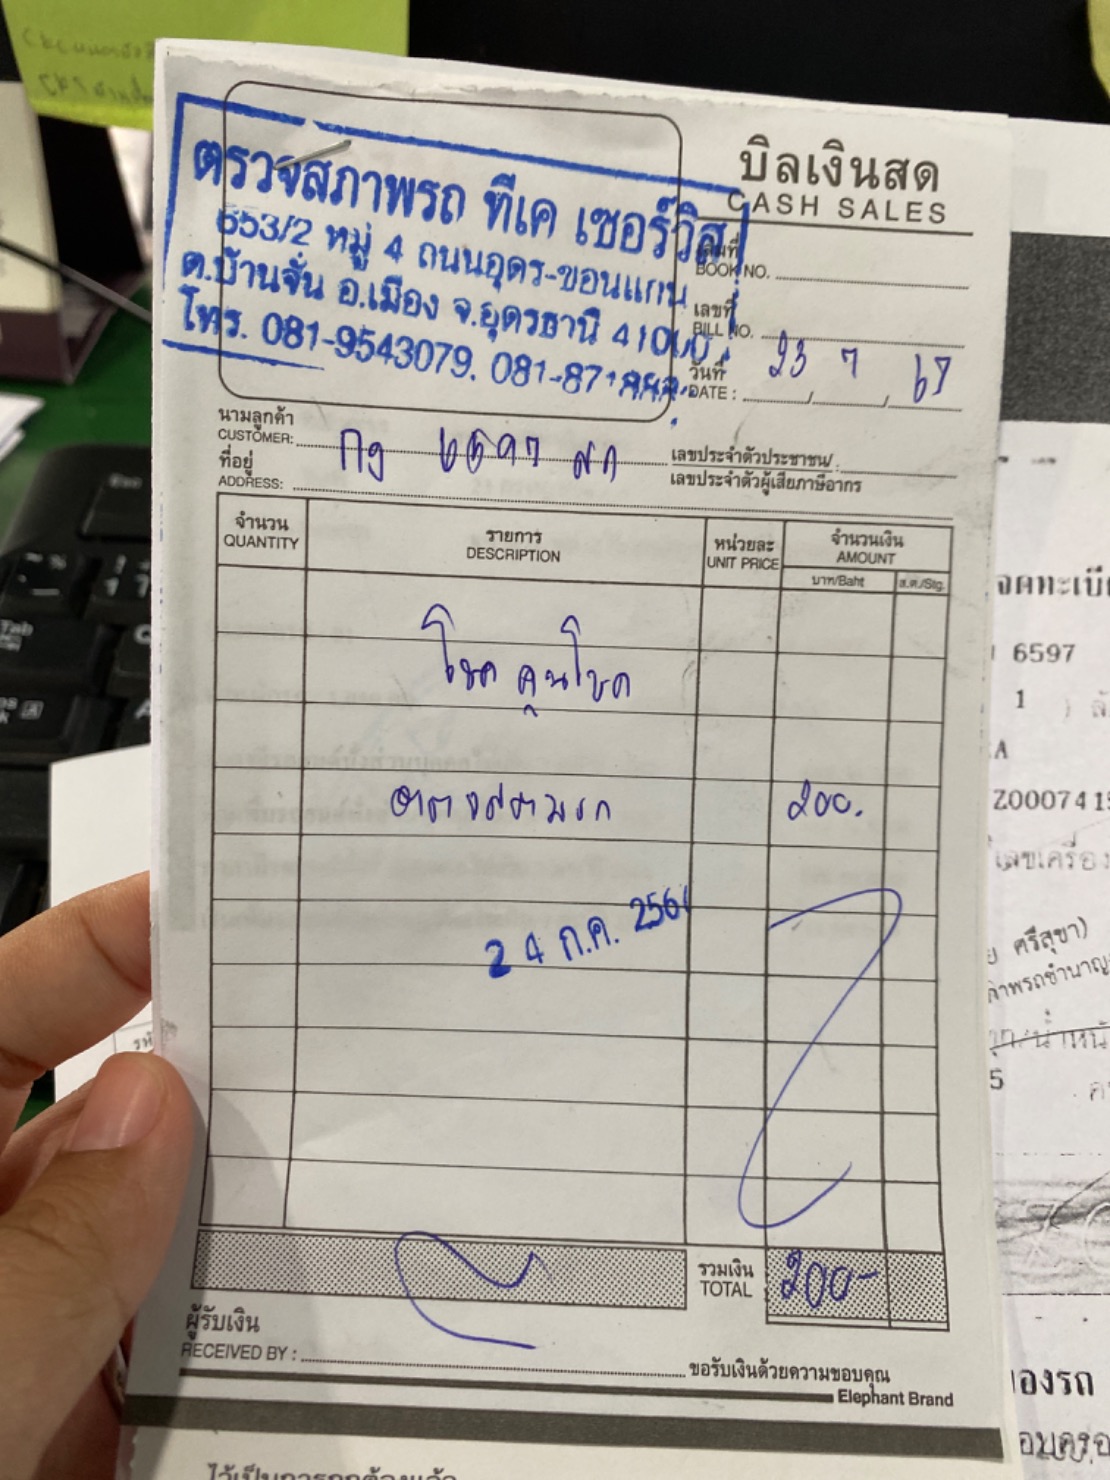 ตรวจสภาพรถ ทีเค เซอร์วิส
653/2 หมู่ 4 ถนนอุดร-ขอนแก่น
ต.บ้านจั่น อ.เมือง จ.อุดรธานี 41000
โทร. 081-9543079, 081-871
บิลเงินสด
CASH SALES
เล่มที่
BOOK NO.
เลขที่
BILL NO.
วันที่
DATE : 23 / 7 / 67
นามลูกค้า
CUSTOMER: กง 6597 อด
ที่อยู่
ADDRESS:
เลขประจำตัวประชาชน/
เลขประจำตัวผู้เสียภาษีอากร
จำนวน
QUANTITY
รายการ
DESCRIPTION
หน่วยละ
UNIT PRICE
จำนวนเงิน
AMOUNT
บาท/Baht
ส.ต./Stg.
โชค คูนโชค
ตรวจสภาพรถ 200.
24 ก.ค. 256
รวมเงิน
TOTAL 200-
ผู้รับเงิน
RECEIVED BY :
ขอรับเงินด้วยความขอบคุณ
Elephant Brand
จดทะเบี
6597
1
Z0007415
เลขเครื่อง
ศรีสุขา)
5
ของรถ
Tab